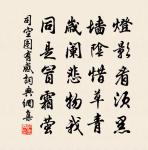 燈影看須黑
墻陰惜草青
歲闌悲物我
同是冒霜螢
司空圖有感詞典網集